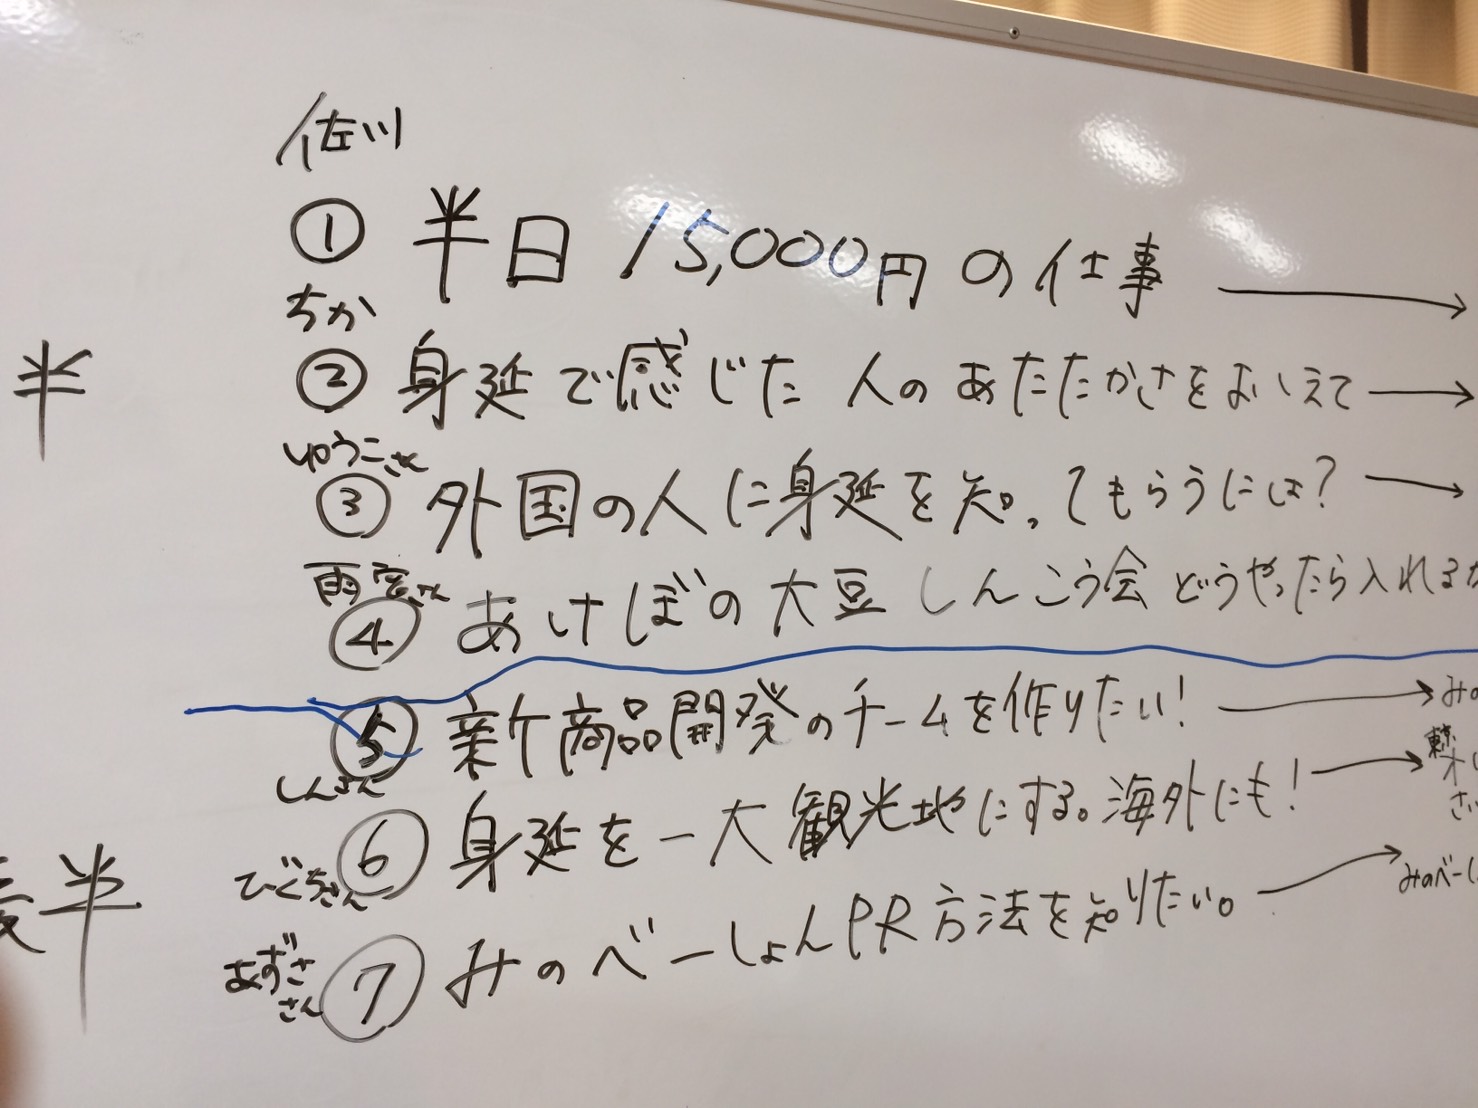 佐川
① 半日 15,000円の仕事 →
ちか
半
② 身延で感じた 人のあたたかさをおしえて →
ゆうこさん
③ 外国の人に身延を知ってもらうには? →
雨宮さん
④ あけぼの大豆 しんこう会 どうやったら入れるか
⑤ 新商品開発のチームを作りたい! → みの
しんさん
⑥ 身延を一大観光地にする。海外にも! → 東京
さい
後半
ひぐちさん
⑦ みのべーしょんPR方法を知りたい。 → みのべーし
あずささん